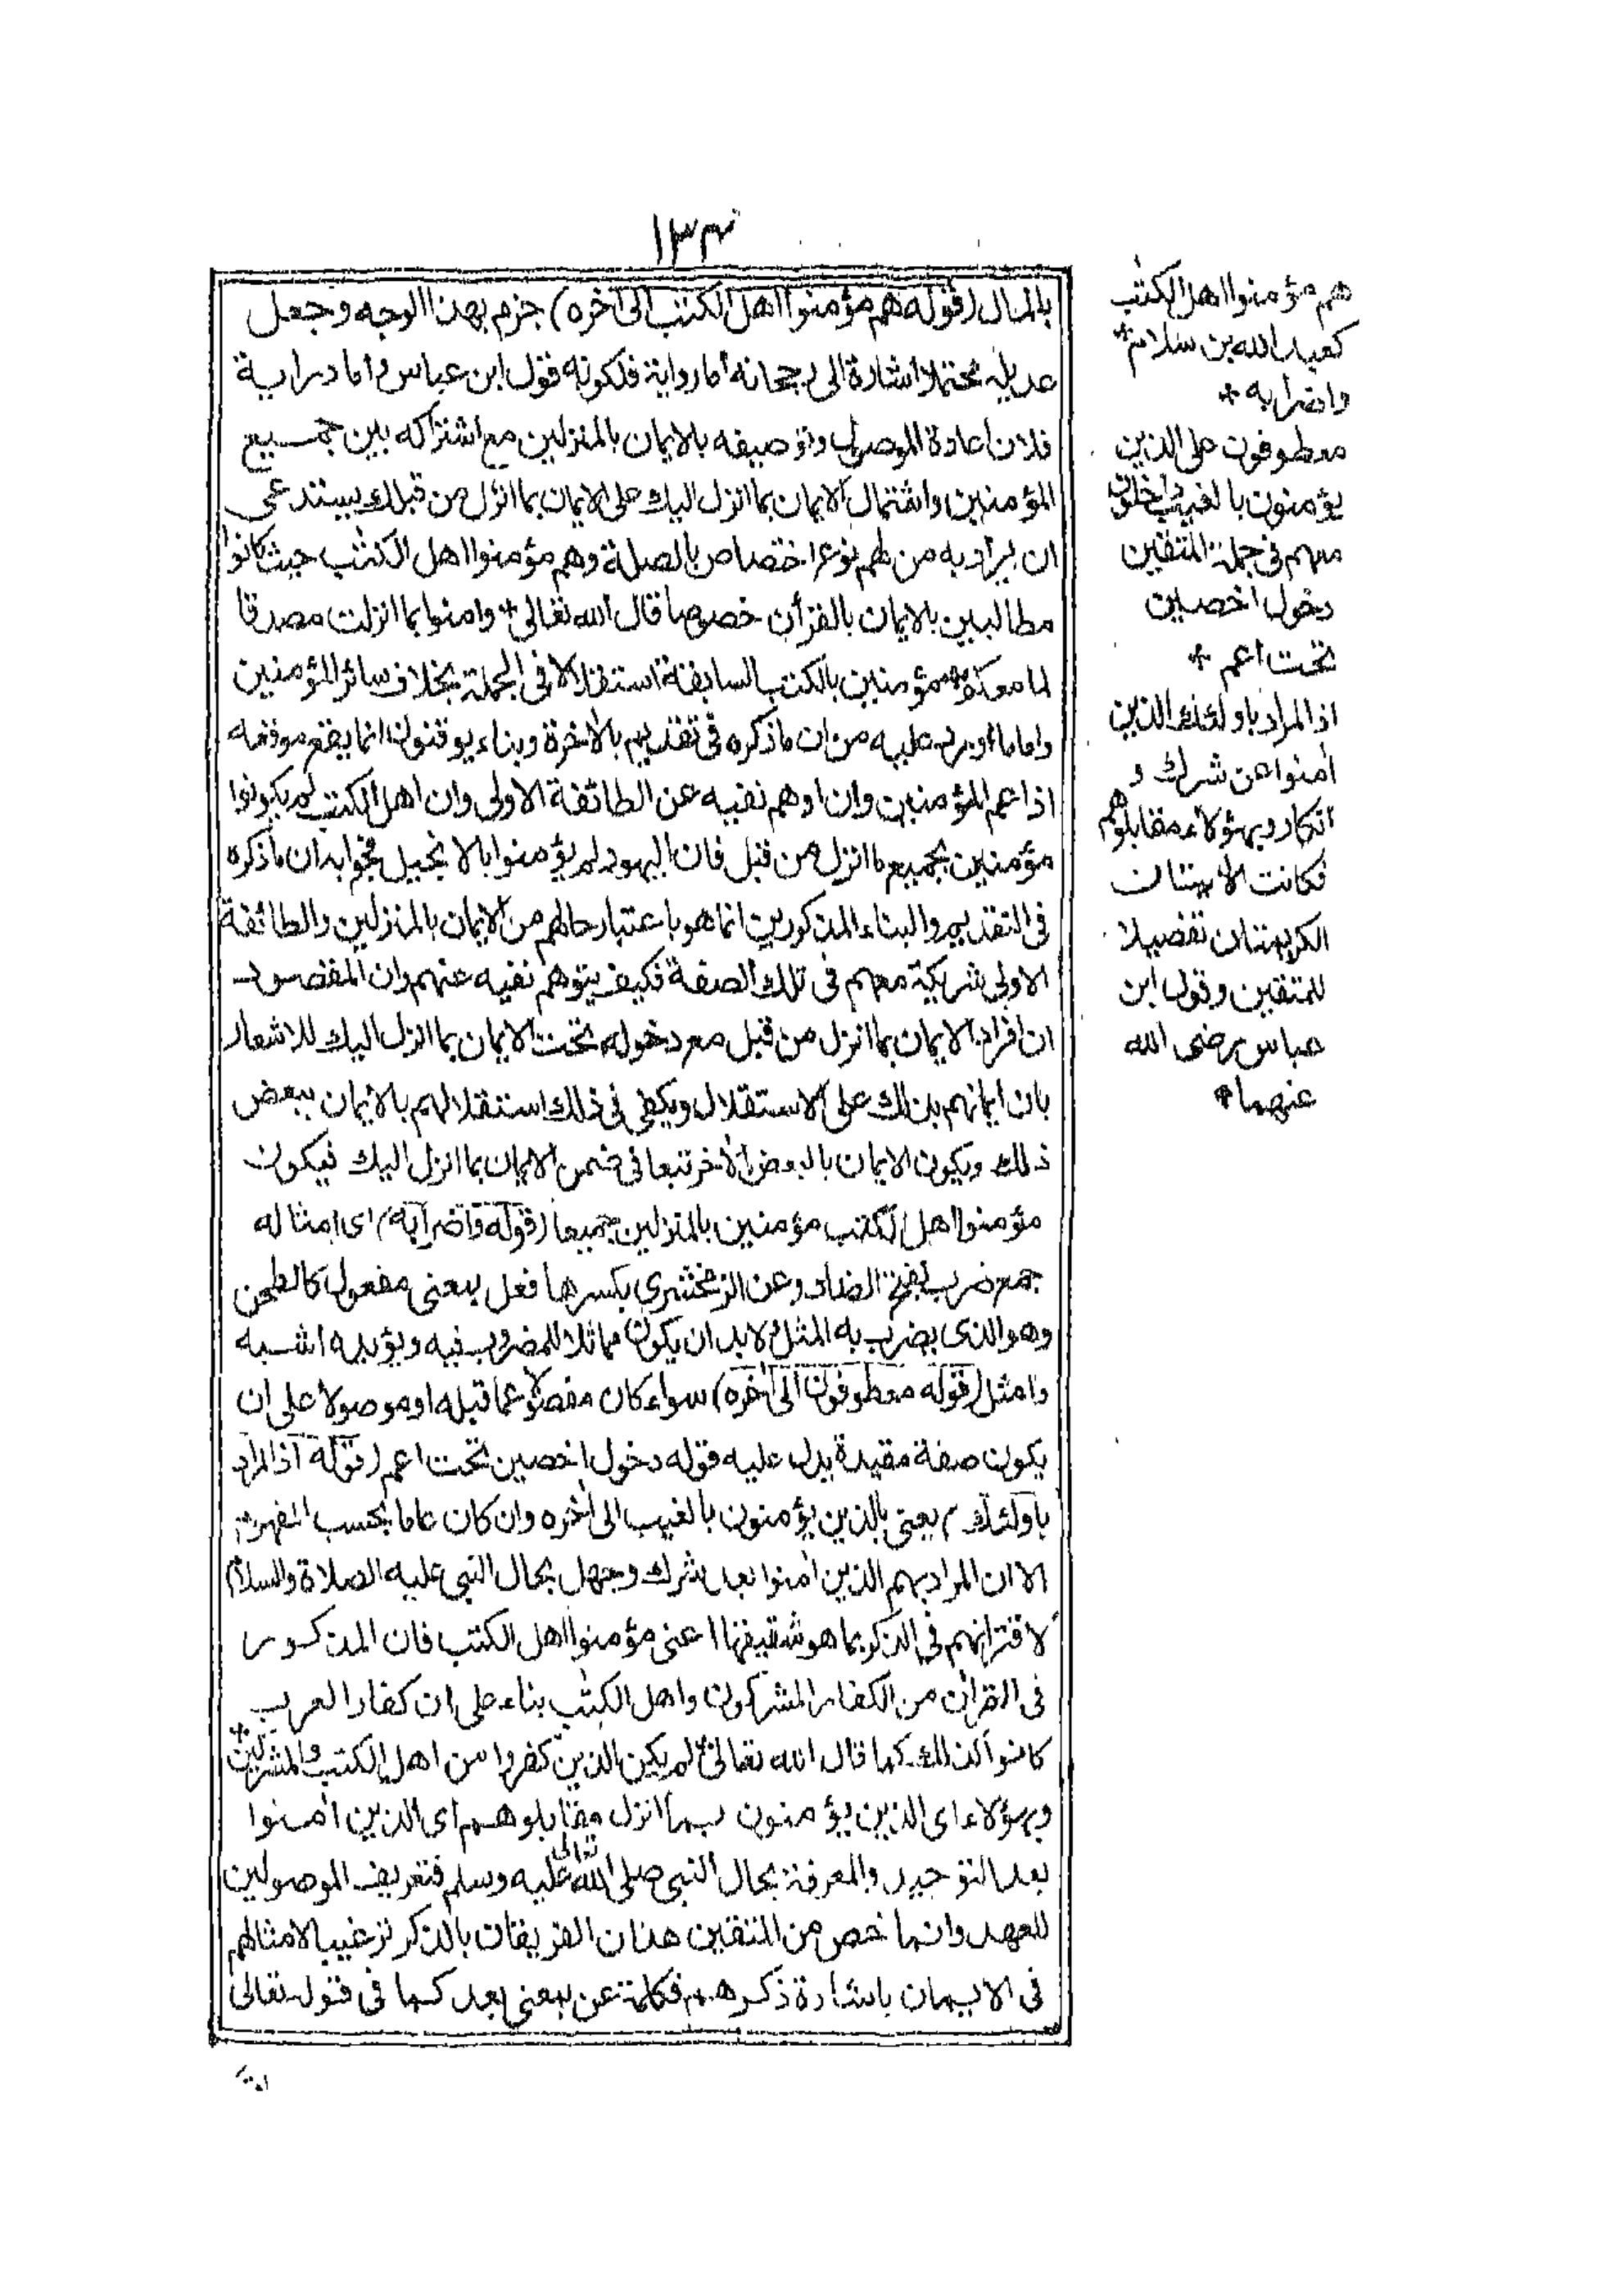 ١٣٤
بالمال (قوله هم مؤمنوا اهل الكتب الى اخره) جزم بهذا الوجه وجعل
عديله محتملا اشارة الى رجحانه اما رواية فلكونه قول ابن عباس واما دراية
فلان اعادة الموصول وتوصيفه بالايمان بالمنزلين مع اشتراكه بين جميع
المؤمنين واشتمال الايمان بما انزل اليك على الايمان بما انزل من قبلك يستدعى
ان يراد به من لهم نوع اختصاص بالصلة وهم مؤمنوا اهل الكتب حيث كانوا
مطالبين بالايمان بالقرأن خصوصا قال الله تعالى * وامنوا بما انزلت مصدقا
لما معكم * مؤمنين بالكتب السابقة استقلالا فى الجملة بخلاف سائر المؤمنين
واما ما اورد عليه من ان ما ذكره فى تقديم بالاخرة وبناء يوقنون انما يقع موقعه
اذا عم المؤمنين وان اوهم نفيه عن الطائفة الاولى وان اهل الكتب لم يكونوا
مؤمنين بجميع ما انزل من قبل فان اليهود لم يؤمنوا بالانجيل فجوابه ان ما ذكره
فى التقديم والبناء المذكورين انما هو باعتبار حالهم من الايمان بالمنزلين والطائفة
الاولى شريكة معهم فى تلك الصفة فكيف يتوهم نفيه عنهم وان المقصود
ان افراد الايمان بما انزل من قبل مع دخوله تحت الايمان بما انزل اليك للاشعار
بان ايمانهم بذلك على الاستقلال ويكفى فى ذلك استقلالهم بالايمان ببعض
ذلك ويكون الايمان بالبعض الاخر تبعا فى ضمن الايمان بما انزل اليك فيكون
مؤمنوا اهل الكتب مؤمنين بالمنزلين جميعا (قوله واضرابه) اى امثاله
جمع ضرب بفتح الضاد وعن الزمخشرى بكسرها فعل بمعنى مفعول كالطحن
وهو الذى يضرب به المثل ولابد ان يكون مماثلا للمضروب فيه ويؤيده اشبه
وامثل (قوله معطوفون الى اخره) سواء كان مفصولا عما قبله او موصولا على ان
يكون صفة مقيدة يدل عليه قوله دخول اخصين تحت اعم (قوله اذ المراد
باولئك) يعنى بالذين يؤمنون بالغيب الى اخره وان كان عاما بحسب المفهوم
الا ان المراد بهم الذين امنوا بعد شرك وجهل بحال النبى عليه الصلاة والسلام
لاقترانهم فى الذكر بما هو شقيقها اعنى مؤمنوا اهل الكتب فان المذكور
فى القرأن من الكفار المشركون واهل الكتب بناء على ان كفار العرب
كانوا كذلك كما قال الله تعالى * لم يكن الذين كفروا من اهل الكتب والمشركين *
وبهؤلاء اى الذين يؤمنون بما انزل مقابلوهم اى الذين امنوا
بعد التوحيد والمعرفة بحال النبى صلى الله تعالى عليه وسلم فتعريف الموصولين
للعهد وانما خص من المتقين هذان الفريقان بالذكر ترغيبا لامثالهم
فى الايمان باشادة ذكرهم فكلمة عن بمعنى بعد كما فى قوله تعالى
هم مؤمنوا اهل الكتب
كعبد الله بن سلام *
واضرابه *
معطوفون على الذين
يؤمنون بالغيب داخلون
معهم فى جملة المتقين
دخول اخصين
تحت اعم *
اذ المراد باولئك الذين
امنوا عن شرك و
انكار وبهؤلاء مقابلوهم
فكانت الايتان
الكريمتان تفصيلا
للمتقين وقول ابن
عباس رضى الله
عنهما *